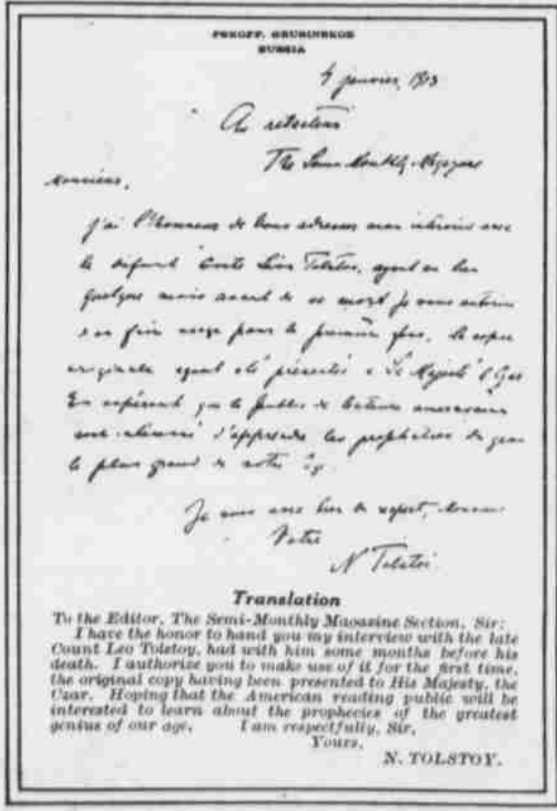 PSKOFF. GRUSINSKOE
RUSSIA
4 janvier, 1913
The Semi-Monthly Magazine
Monsieur,
J'ai l'honneur de vous adresser mon interview avec
le défunt Comte Léon Tolstoi, ayant eu lieu
quelques mois avant de sa mort je vous autorise
pour la première fois, la copie
originale ayant été présentée a Sa Majesté
En espérant que le public de lecteurs americains
d'apprendre les prophéties du
le plus grand de notre
Je suis avec bien de respect, Monsieur
Votre
N Tolstoi
Translation
To the Editor, The Semi-Monthly Magazine Section, Sir:
I have the honor to hand you my interview with the late
Count Leo Tolstoy, had with him some months before his
death. I authorize you to make use of it for the first time,
the original copy having been presented to His Majesty, the
Czar. Hoping that the American reading public will be
interested to learn about the prophecies of the greatest
genius of our age, I am respectfully, Sir,
Yours,
N. TOLSTOY.